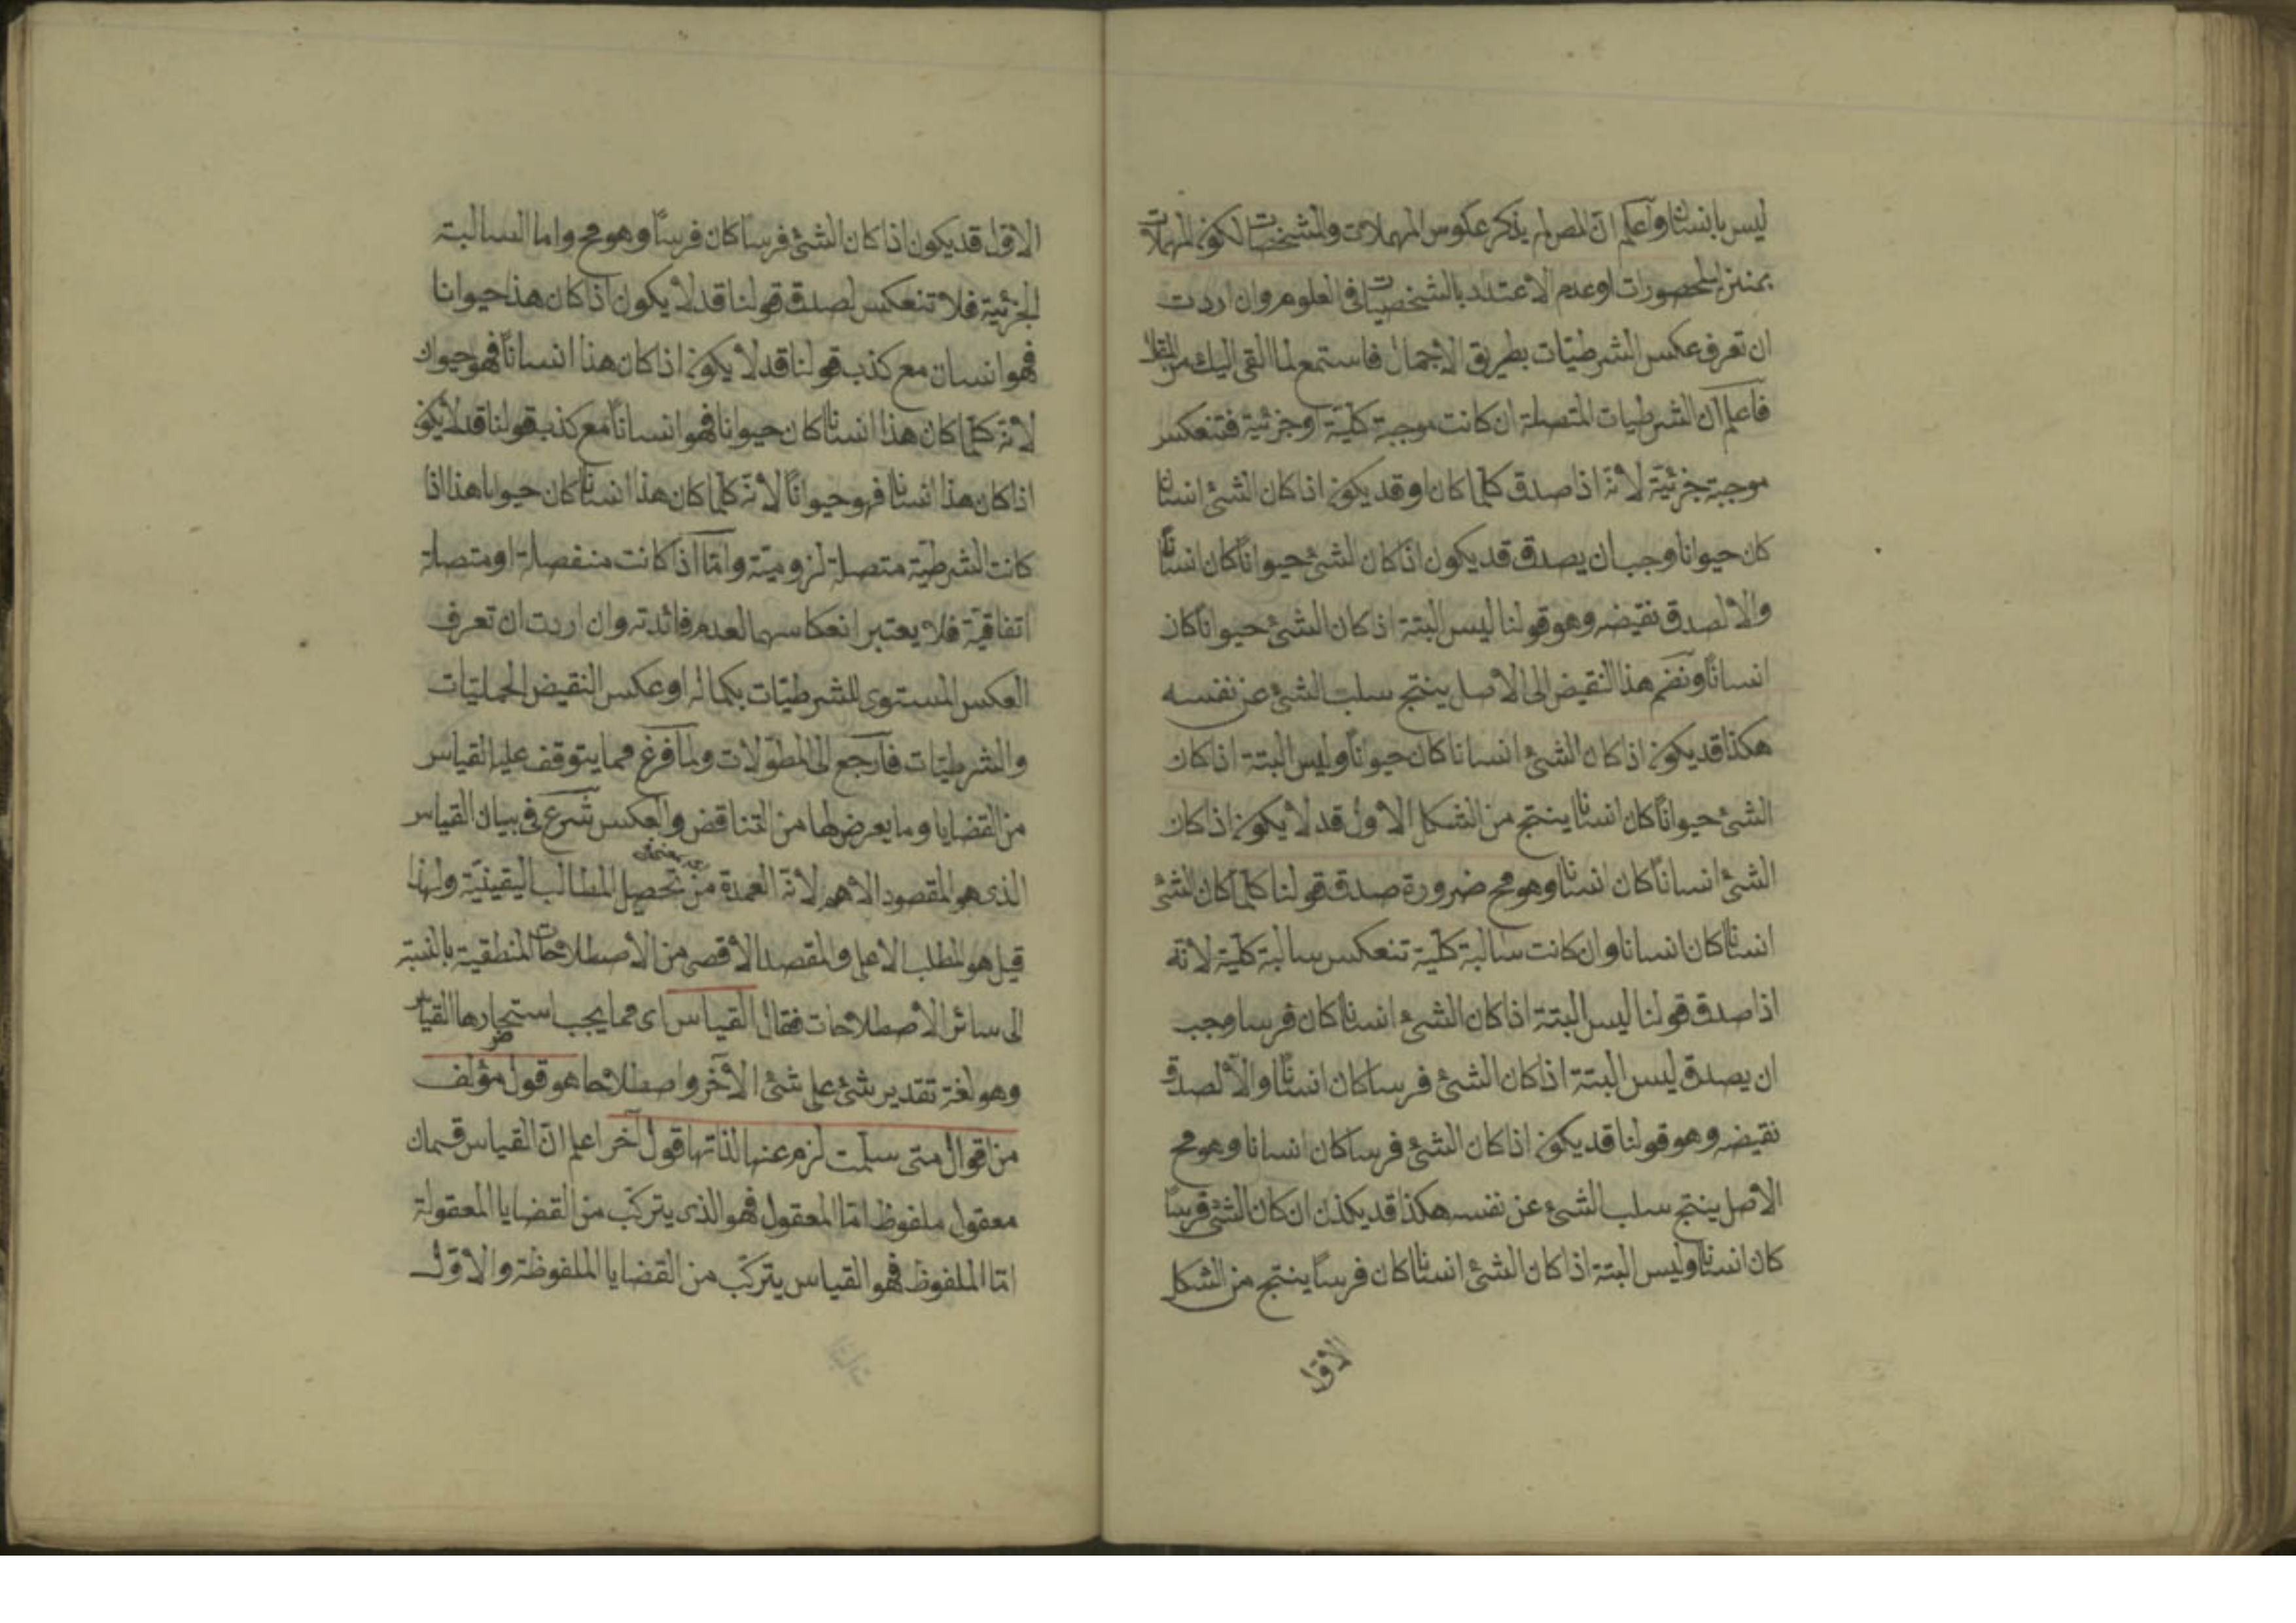 ليس بانسان واعلم انّ المص لم يذكر عكوس المهملات والشخصيات لكون المهملات
بمنزلة المحصورات او عدم الاعتداد بالشخصيات فى العلوم وان اردت
ان تعرف عكس الشرطيّات بطريق الاجمال فاستمع لما القى اليك من المقال
فاعلم ان الشرطيات المتصلة ان كانت موجبة كليّة او جزئية فتنعكس
موجبة جزئيّة لانّه اذا صدق كلما كان او قد يكون اذا كان الشئ انسانا
كان حيوانا وجب ان يصدق قد يكون اذا كان الشئ حيوانًا كان انسانًا
والا لصدق نقيضه وهو قولنا ليس البتة اذ كان الشئ حيوانًا كان
انسانًا ونضم هذا النقيض الى الاصل ينتج سلب الشئ عن نفسه
هكذا قد يكون اذ كان الشئ انسانا كان حيوانًا وليس البتة اذا كان
الشئ حيوانًا كان انسانا ينتج من الشكل الاول قد لا يكون اذ كان
الشئ انسانًا كان انسانا وهو مح ضرورة صدق قولنا كلّما كان الشئ
انسانًا كان انسانا وان كانت سالبة كليّة تنعكس سالبة كليّة لانّه
اذا صدق قولنا ليس البتة اذا كان الشئ انسانا كان فرسا وجب
ان يصدق ليس البتة اذا كان الشئ فرسا كان انسانًا والّا لصدق
نقيضه وهو قولنا قد يكون اذا كان الشئ فرسا كان انسانا وهو مح
الاصل ينتج سلب الشئ عن نفسه هكذا قد يكذن ان كان الشئ فرسًا
كان انسانا وليس البتة اذا كان الشئ انسانا كان فرسًا ينتج من الشكل
الاوّل
الاوّل قد يكون اذا كان الشئ فرسًا كان فرسًا وهو مح واما السالبة
الجزئية فلا تنعكس لصدق قولنا قد لا يكون اذا كان هذا حيوانا
فهو انسان مع كذب قولنا قد لا يكون اذا كان هذا انسانًا فهو حيوان
لانّه كلّما كان هذا انسانا كان حيوانا فهو انسانًا مع كذب قولنا قد لا يكون
اذا كان هذا انسانا فهو حيوانًا لانّه كلّما كان هذا انسانا كان حيوانا هذا اذا
كانت الشرطيّة متصلة لزوميّة وامّا اذا كانت منفصلة او متصلة
اتفاقيّة فلا يعتبر انعكاسهما لعدم فائدته وان اردت ان تعرف
العكس المستوى للشرطيّات بكماله او عكس النقيض الحمليّات
والشرطيّات فارجع الى المطوّلات ولما فرغ مما يتوقف عليه القياس
من القضايا وما يعرض لها من التناقض والعكس شرع فى بيان القياس
الذى هو المقصود الاهم لانّه العمدة من تحصيل المطالب اليقينيّة ولهذا
قيل هو المطلب الاعلى والمقصد الاقصى من الاصطلاحات المنطقية بالنسبة
الى سائر الاصطلاحات فقال القياس اى مما يجب استحضارها القياس
وهو لغة تقدير شئ على شئ الآخر واصطلاحا هو قول مؤلف
من اقوال متى سلّمت لزم عنها لذاتها قول آخر اعلم انّ القياس قسمان
معقول ملفوظ امّا المعقول فهو الذى يتركّب من القضايا المعقولة
امّا الملفوظ فهو القياس يتركّب من القضايا الملفوظة والاوّل